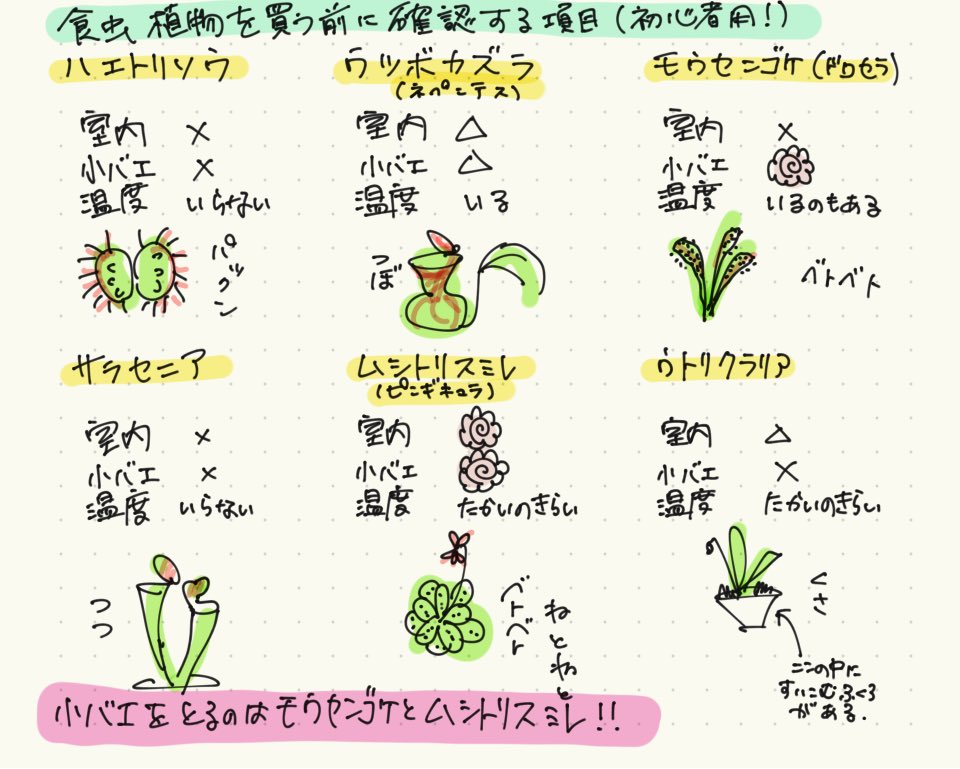 食虫植物を買う前に確認する項目(初心者用!)
ハエトリソウ
室内 ×
小バエ ×
温度 いらない
パックン
ウツボカズラ
(ネペンテス)
室内 △
小バエ △
温度 いる
つぼ
モウセンゴケ(ドロセラ)
室内 ×
小バエ
温度 いるのもある
ベトベト
サラセニア
室内 ×
小バエ ×
温度 いらない
つつ
ムシトリスミレ
(ピンギキュラ)
室内
小バエ
温度 たかいのきらい
ベトベト
ねとねと
ウトリクラリア
室内 △
小バエ ×
温度 たかいのきらい
くさ
ここの中に
すいこむふくろ
がある.
小バエをとるのはモウセンゴケとムシトリスミレ!!